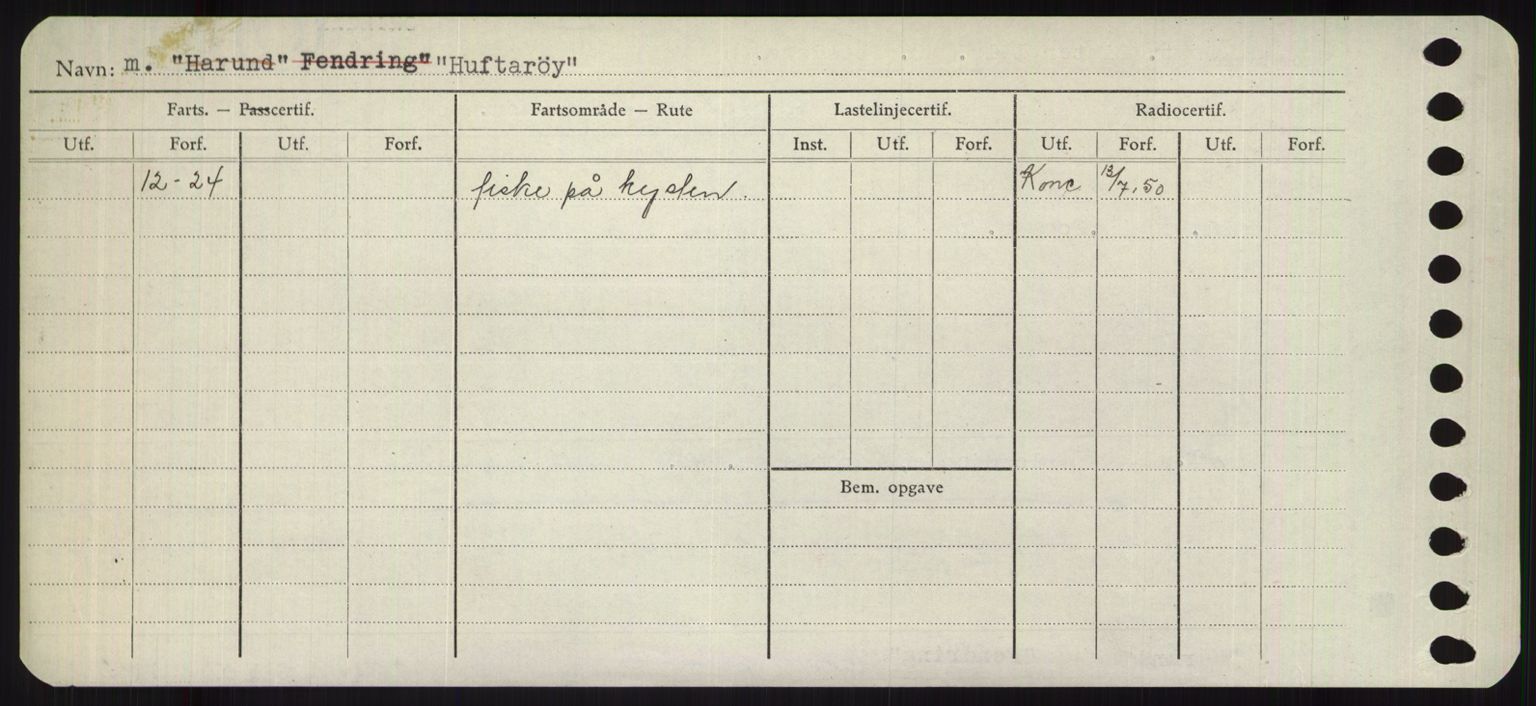 Navn: m. "Harund" Fendring" "Huftaröy"
Farts. — Passcertif. Fartsområde — Rute Lastelinjecertif. Radiocertif.
Utf. Forf. Utf. Forf. Inst. Utf. Forf. Utf. Forf. Utf. Forf.
12-24 fiske på kysten. Konc 13/7.50
Bem. opgave